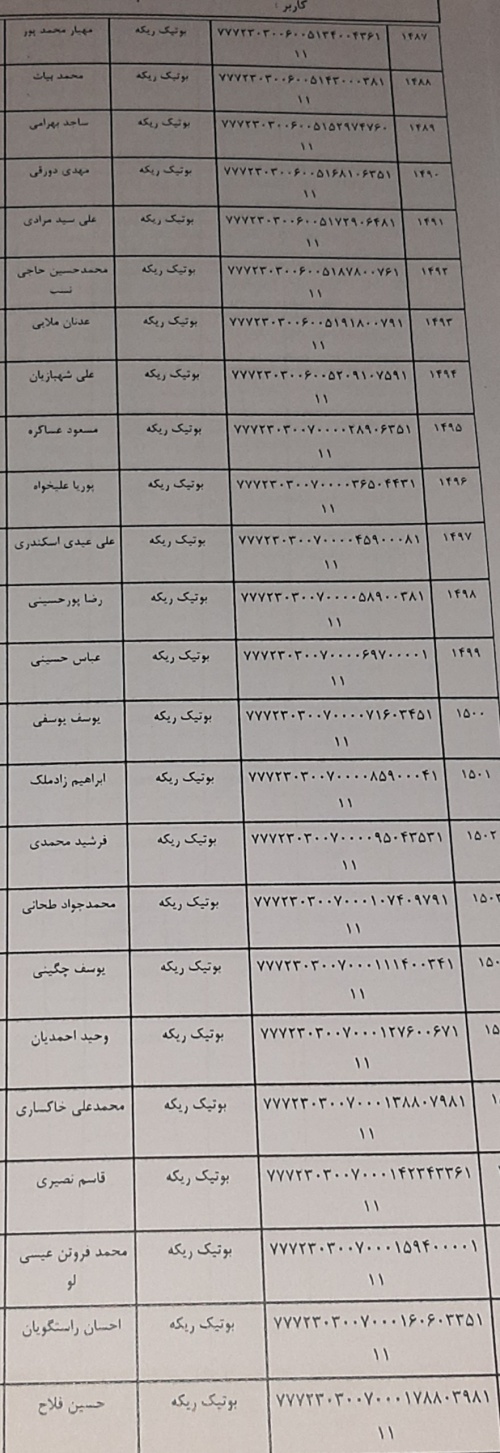 کاربر :
۱۴۸۷ ۷۷۷۲۳۰۳۰۰۶۰۰۵۱۳۴۰۰۴۳۶۱ بوتیک ریکه مهیار محمد پور
۱۱
۱۴۸۸ ۷۷۷۲۳۰۳۰۰۶۰۰۵۱۴۳۰۰۰۳۸۱ بوتیک ریکه محمد بیات
۱۱
۱۴۸۹ ۷۷۷۲۳۰۳۰۰۶۰۰۵۱۵۲۹۷۴۷۶۰ بوتیک ریکه ساجد بهرامی
۱۱
۱۴۹۰ ۷۷۷۲۳۰۳۰۰۶۰۰۵۱۶۸۱۰۶۳۵۱ بوتیک ریکه مهدی دورقی
۱۱
۱۴۹۱ ۷۷۷۲۳۰۳۰۰۶۰۰۵۱۷۲۹۰۶۴۸۱ بوتیک ریکه علی سید مرادی
۱۱
۱۴۹۲ ۷۷۷۲۳۰۳۰۰۶۰۰۵۱۸۷۸۰۰۷۶۱ بوتیک ریکه محمدحسین حاجی
۱۱ نسب
۱۴۹۳ ۷۷۷۲۳۰۳۰۰۶۰۰۵۱۹۱۸۰۰۷۹۱ بوتیک ریکه عدنان ملایی
۱۱
۱۴۹۴ ۷۷۷۲۳۰۳۰۰۶۰۰۵۲۰۹۱۰۷۵۹۱ بوتیک ریکه علی شهبازیان
۱۱
۱۴۹۵ ۷۷۷۲۳۰۳۰۰۷۰۰۰۰۲۸۹۰۶۳۵۱ بوتیک ریکه مسعود عساکره
۱۱
۱۴۹۶ ۷۷۷۲۳۰۳۰۰۷۰۰۰۰۳۶۵۰۴۴۳۱ بوتیک ریکه پوریا علیخواه
۱۱
۱۴۹۷ ۷۷۷۲۳۰۳۰۰۷۰۰۰۰۴۵۹۰۰۰۸۱ بوتیک ریکه علی عبدی اسکندری
۱۱
۱۴۹۸ ۷۷۷۲۳۰۳۰۰۷۰۰۰۰۵۸۹۰۰۳۸۱ بوتیک ریکه رضا پورحسینی
۱۱
۱۴۹۹ ۷۷۷۲۳۰۳۰۰۷۰۰۰۰۶۹۷۰۰۰۰۱ بوتیک ریکه عباس حسینی
۱۱
۱۵۰۰ ۷۷۷۲۳۰۳۰۰۷۰۰۰۰۷۱۶۰۳۴۵۱ بوتیک ریکه یوسف یوسفی
۱۱
۱۵۰۱ ۷۷۷۲۳۰۳۰۰۷۰۰۰۰۸۵۹۰۰۰۴۱ بوتیک ریکه ابراهیم زادملک
۱۱
۱۵۰۲ ۷۷۷۲۳۰۳۰۰۷۰۰۰۰۹۵۰۴۳۵۳۱ بوتیک ریکه فرشید محمدی
۱۱
۷۷۷۲۳۰۳۰۰۷۰۰۰۱۰۷۴۰۹۷۹۱ بوتیک ریکه محمدجواد طحانی
۱۱
۷۷۷۲۳۰۳۰۰۷۰۰۰۱۱۱۴۰۰۳۴۱ بوتیک ریکه یوسف چگینی
۱۱
۷۷۷۲۳۰۳۰۰۷۰۰۰۱۲۷۶۰۰۶۷۱ بوتیک ریکه وحید احمدیان
۱۱
۷۷۷۲۳۰۳۰۰۷۰۰۰۱۳۸۸۰۷۹۸۱ بوتیک ریکه محمدعلی خاکساری
۱۱
۷۷۷۲۳۰۳۰۰۷۰۰۰۱۴۲۳۴۳۳۶۱ بوتیک ریکه قاسم نصیری
۱۱
۷۷۷۲۳۰۳۰۰۷۰۰۰۱۵۹۴۰۰۰۰۱ بوتیک ریکه محمد فروتن عیسی
۱۱ لو
۷۷۷۲۳۰۳۰۰۷۰۰۰۱۶۰۶۰۳۳۵۱ بوتیک ریکه احسان راستگویان
۱۱
۷۷۷۲۳۰۳۰۰۷۰۰۰۱۷۸۸۰۳۹۸۱ بوتیک ریکه حسین فلاح
۱۱